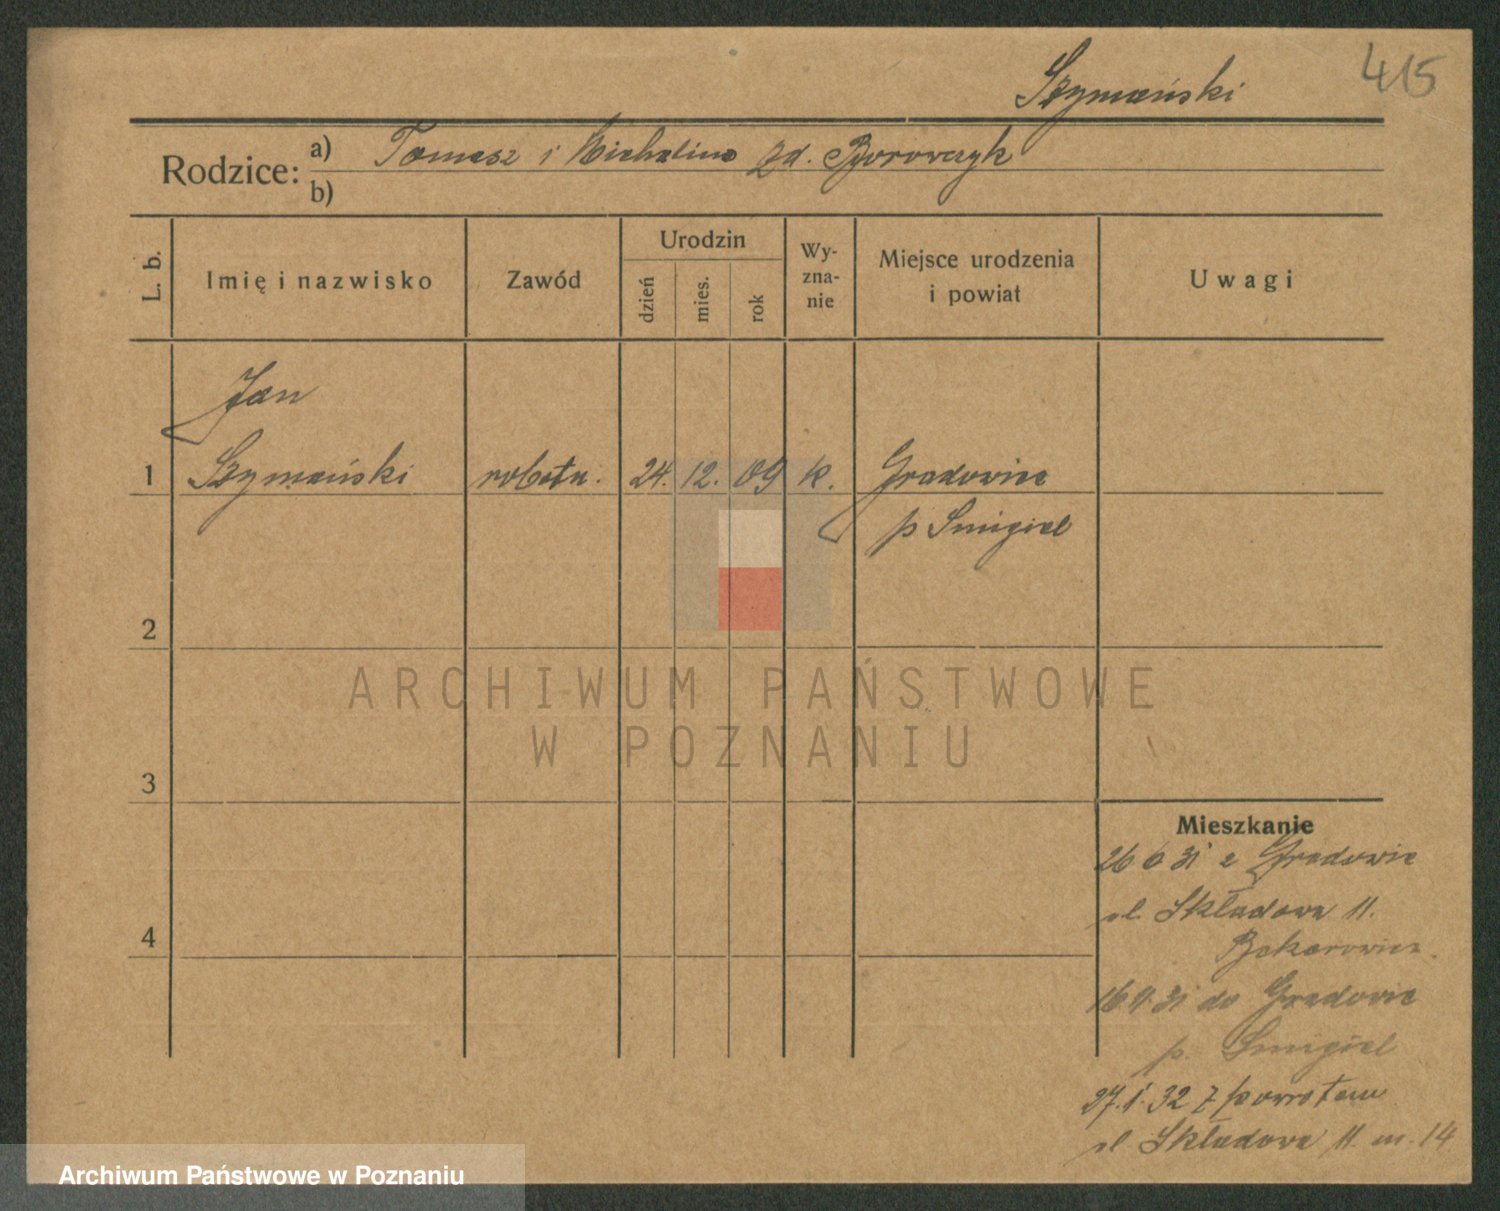 415
Szymański
Rodzice: a) Tomasz i Michalina zd. Borowczyk
b)
L. b.
Imię i nazwisko
Zawód
Urodzin
dzień
mies.
rok
Wy-
zna-
nie
Miejsce urodzenia
i powiat
Uwagi
Jan
1 Szymański robotn. 24. 12. 09 k. Gradowice
p Smigiel
2
ARCHIWUM PAŃSTWOWE
W POZNANIU
3
Mieszkanie
26 6 31 z Gradowic
ul. Składowa 11.
4
do Gradowic
p. Smigiel
27.1.32 z powrotem
ul Składowa 11 m. 14
Archiwum Państwowe w Poznaniu